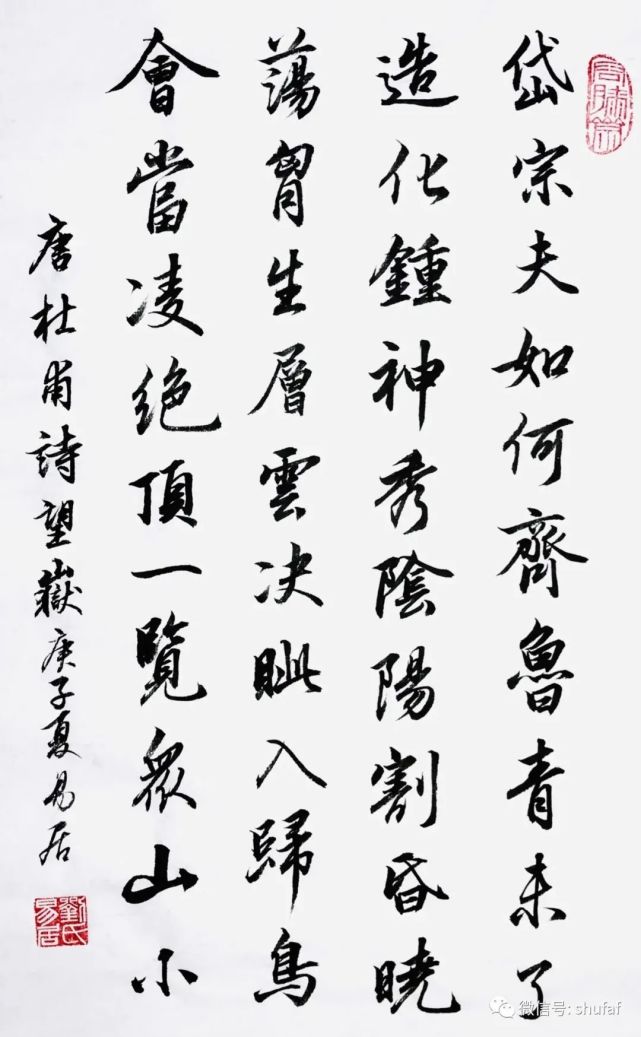 岱宗夫如何齊魯青未了
造化鍾神秀陰陽割昏曉
蕩胷生層雲決眥入歸鳥
會當凌絕頂一覽眾山小
唐杜甫詩望嶽庚子夏易居
劉氏易居
微信号: shufaf